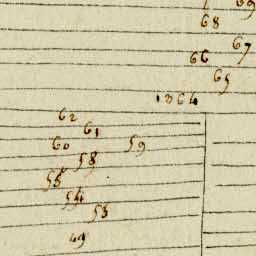 69
68
67
66
65
64
62
61
60
59
58
55
54
53
49